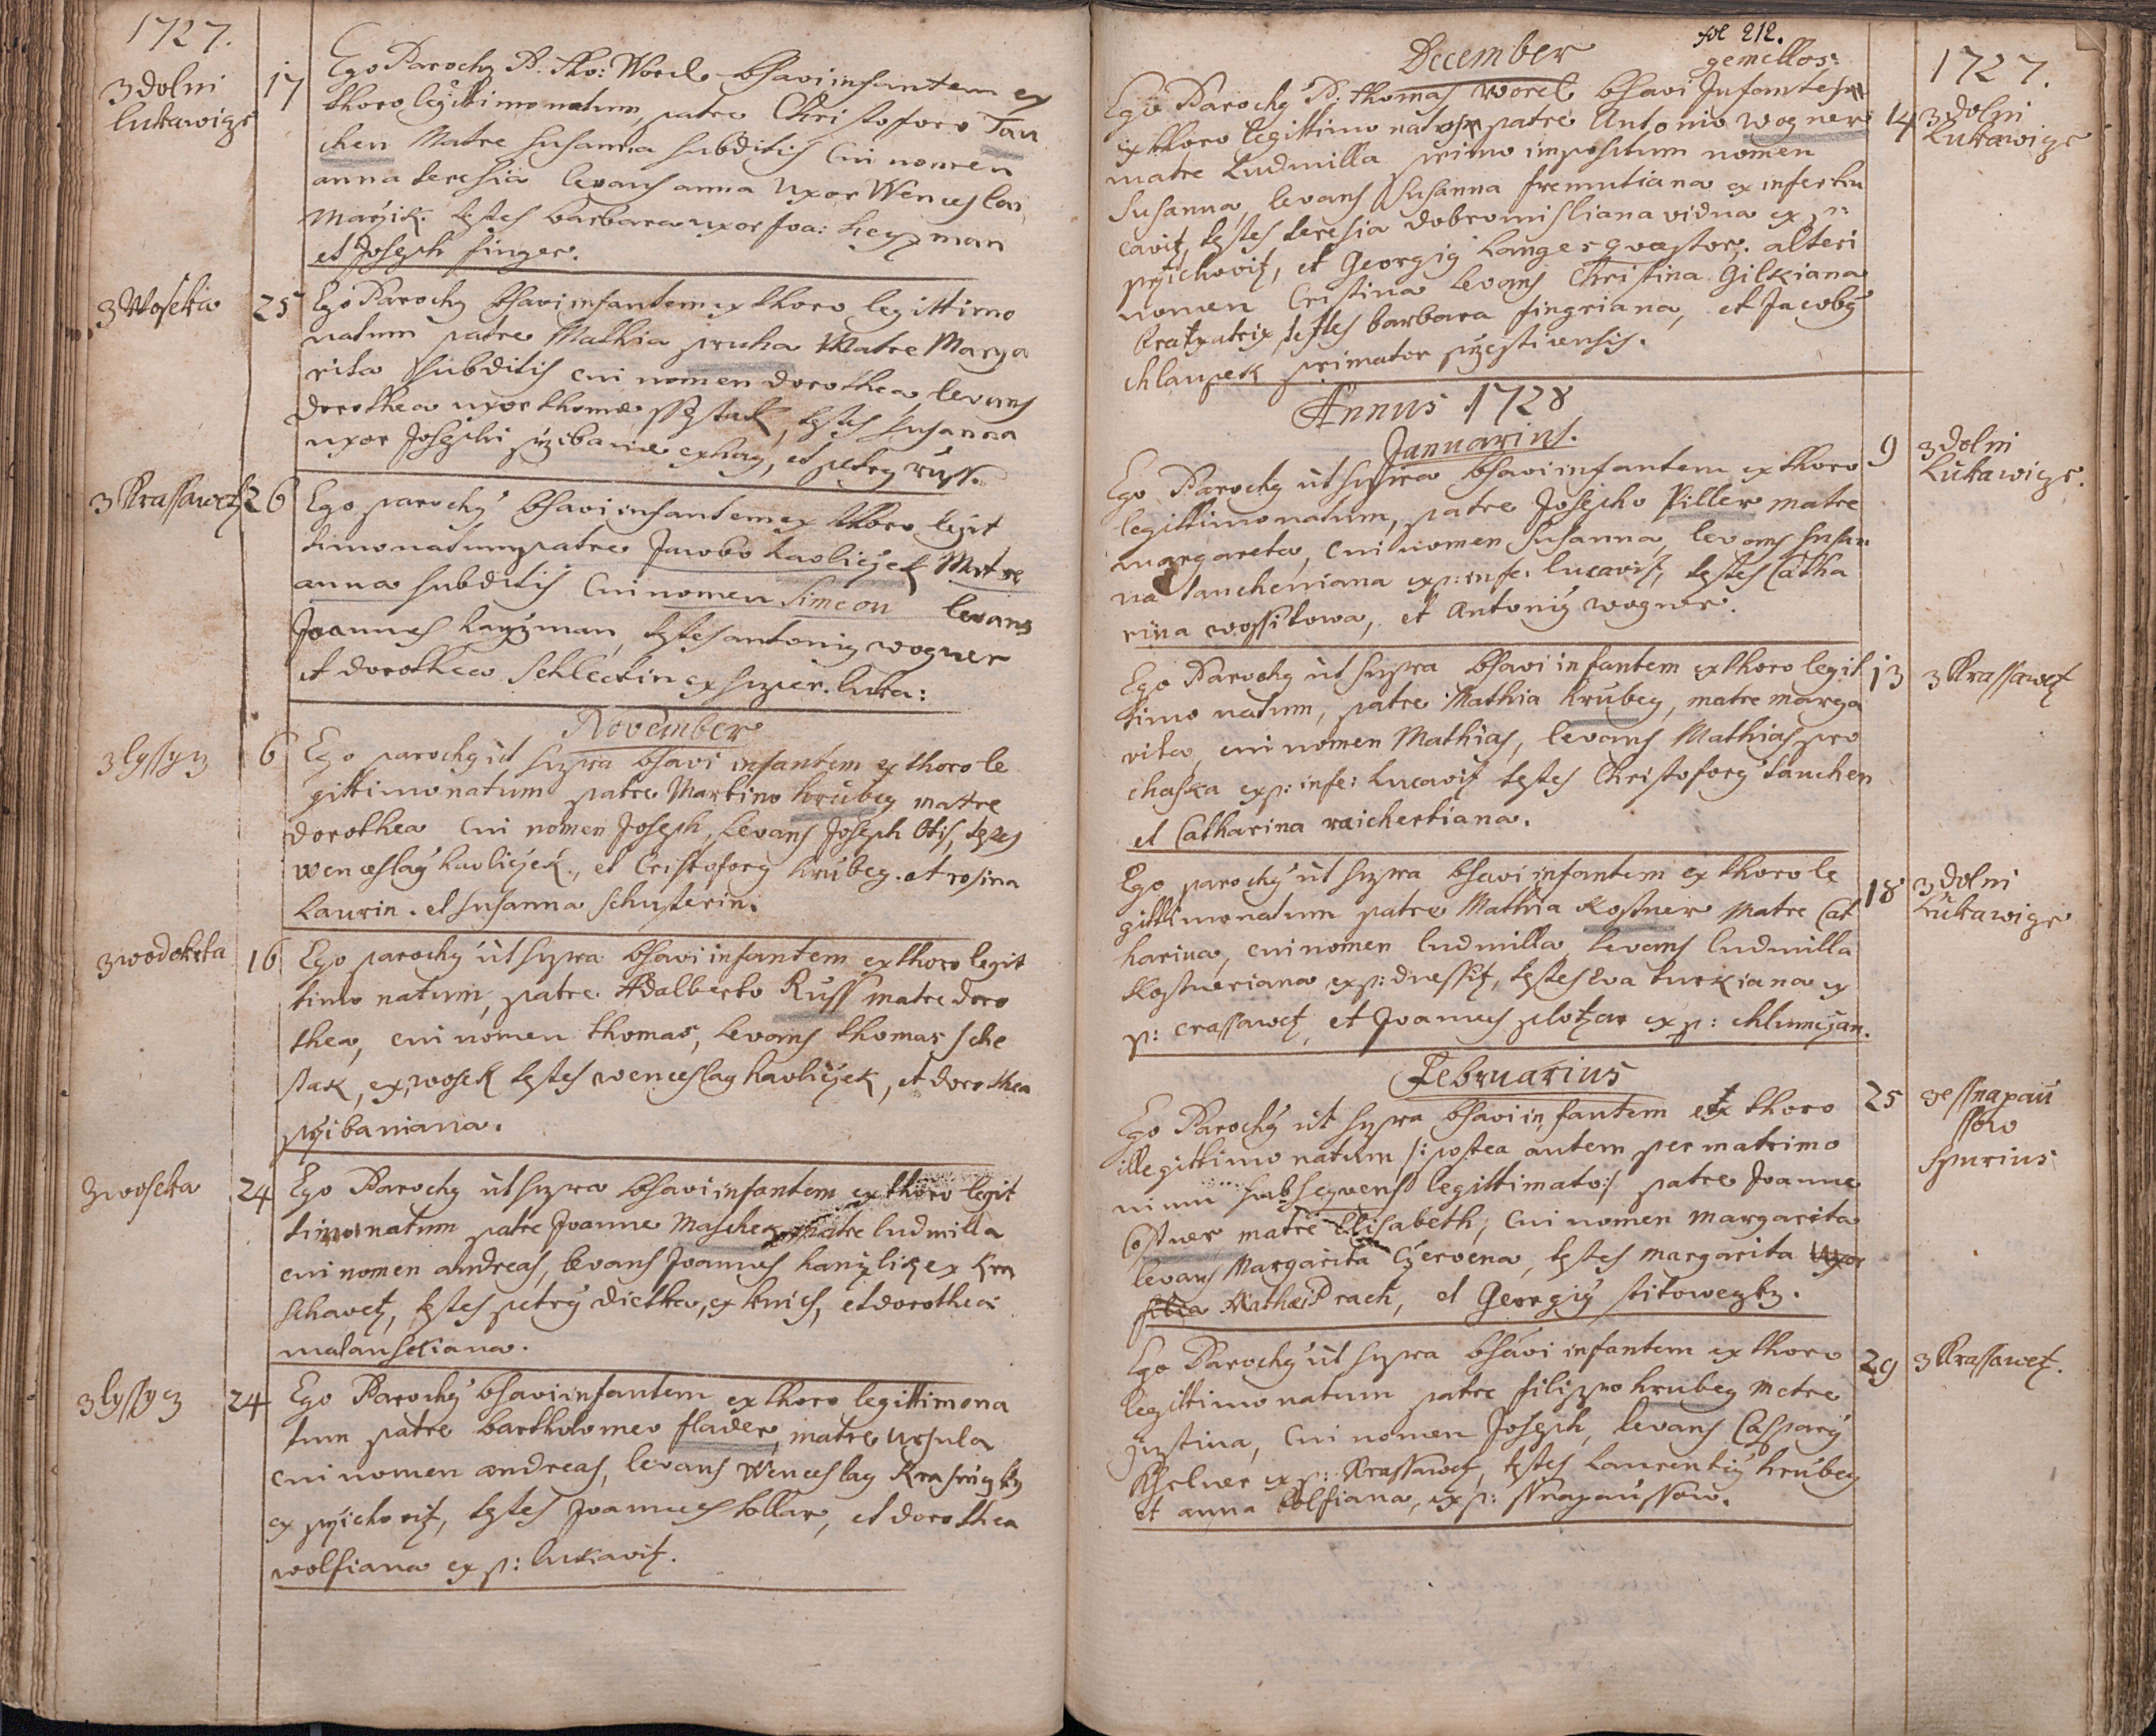 1727.
3 dolni
Lukawize
17
Ego Parochy P. Tho: Worel bsavi infantem ex
thoro legitimo natum, patre Christoforo Tau
chen Matre susanna subditis Cui nomen
anna teresia levans anna uxor Wenceslai
Marzik. testes barbara uxor Joa: heyzman
et Joseph finger.
3 Woseka
25
Ego Parochy bsavi infantem ex thoro legittimo
natum patre Mathia pruha Matre Marga
rita subditis cui nomen dorothea, levans
dorothea uxor thomae ssestak, testes susanna
uxor Josephi et petry russ.
3 Krassawetz
26
Ego parochy bsavi infantem ex thoro legit
timo natum patre Jacobo havliczek Matre
anna subditis Cui nomen Simeon levans
Joannes hayzman, testes antoniy wogner
et dorothea Schlecktin ex super. luka:
November
3 lyssyz
6
Ego parochy ut supra bsavi infantem ex thoro le
gittimo natum patre Martino hrubey matre
dorothea Cui nomen Joseph, Levans Joseph Otis, testes
wenceslaÿ havliczek, et Cristofory hrubey. et rosina
Laurin. et susanna schusterin.
3 wodokrta
16
Ego parochy ut supra bsavi infantem ex thoro legit
timo natum, patre Adalberto Russ matre doro
thea, cui nomen thomas, Levans thomas sche
stak, ex, wosek testes wenceslaÿ havliczek, et dorothea
pržibaniana.
3 woseka
24
Ego Parochy ut supra bsavi infantem ex thoro legit
timo natum patre Joanne Maschek matre ludmilla
cui nomen andreas, levans Joannes hanzlik ex Kra
schavetz, testes petrÿ dietka, ex knies, et dorothea
malanskiana.
3 lyssyz
24
Ego Parochy bsavi infantem ex thoro legittimo na
tum patre bartholomeo flader, matre ursula
cui nomen andreas, levans Wenceslaÿ
ex pržichovitz, testes Joannes kollar, et dorothea
wolfiana ex p: lukavitz.
fol 212.
1727.
December
gemellos:
Ego Parochy P: thomas worel bsavi Infantes
ex thoro legittimo natos patre Antonio wogner
matre Ludmilla primo impositum nomen
Susanna, levans Susanna fremutiana ex infer lu
cavitz, testes teresia dobromisliana vidua ex
pržichovitz, et Georgiÿ Langer quaestor. alteri
nomen Cristina Levans Christina Gilkiana
testes barbara fingriana, et Jacobÿ
chlaupek primator pržestiensis.
14
3 dolni
Lukawize
Annus 1728
Januarius.
Ego Parochy ut supra bsavi infantem ex thoro
legittimo natum, patre Josepho Piller matre
margareta, cui nomen Susanna, levans susan
na taucheniana ex p: infe: lucavitz, testes Catha
rina wossikowa, et Antoniÿ wogner.
9
3 dolni
Lukawize.
Ego Parochy ut supra bsavi infantem ex thoro legit
timo natum, patre Mathia hrubey, matre marga
rita, cui nomen Mathias, levans Mathias pro
chaska ex p: infe: Lucavitz testes Christofory tauchen
et Catharina reichertiana.
13
3 Krassawetz
Ego parochy ut supra bsavi infantem ex thoro le
gittimo natum patre Mathia Kostner Matre Cat
harina, cui nomen ludmilla levans ludmilla
Kostneriana ex p: dnessitz, testes Eva turkiana ex
p: crassawetz, et Joannes plotzar ex p: chlumczan.
18
3 dolni
Lukawize
Februarius
Ego Parochy ut supra bsavi infantem ex thoro
illegittimo natum /: postea autem per matrimo
nium subsequens legittimato :/ patre Joanne
Costner matre Elisabeth, Cui nomen Margarita
levans Margarita Czervena, testes margarita uxor
filia Mathaei Prach, et Georgiÿ
25
ze ssnapau
ssow
Spurius
Ego Parochy ut supra bsavi infantem ex thoro
legittimo natum patre filippo hrubey Metre
justina, Cui nomen Joseph, levans Casparÿ
ex p: Krassawetz, testes Laurentiÿ hrubey
et anna wolfiana, ex p: ssnapaussow.
29
3 Krassawetz.